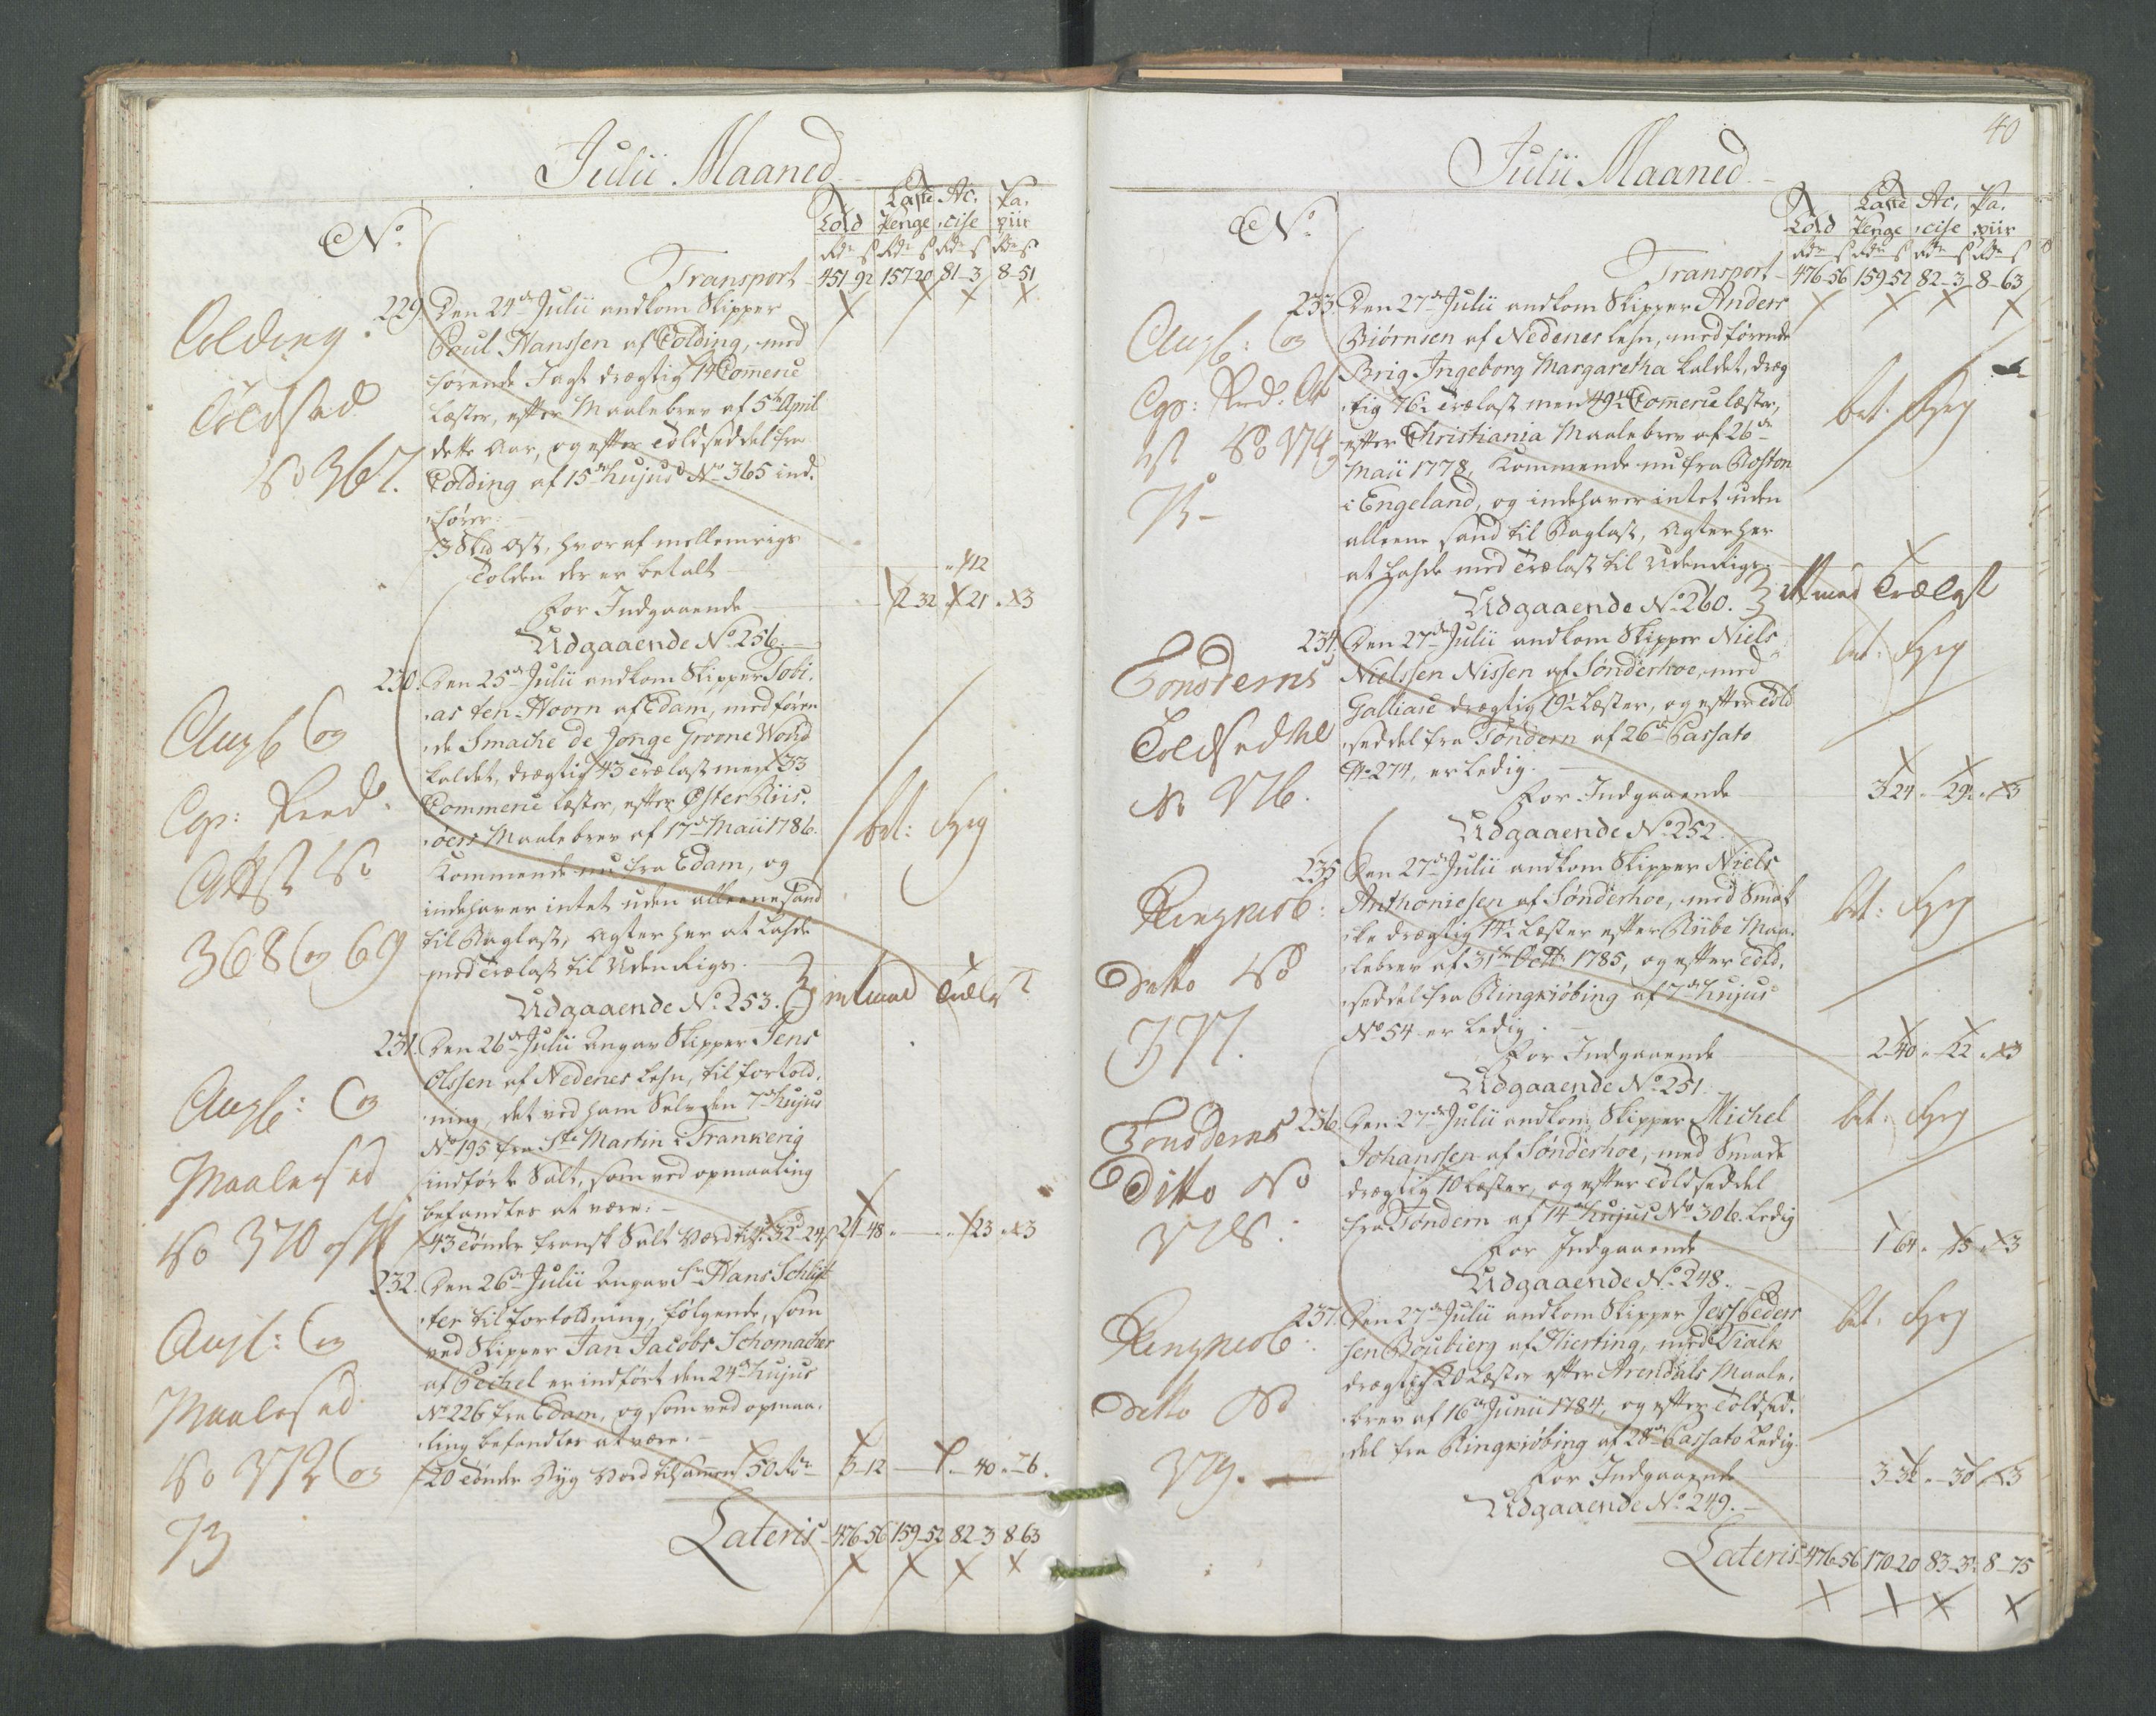 Julii Maaned
No
Told
Laste Penge
Accise
Papiir
Rdr ß Rdr ß Rdr ß Rdr ß
Transport 451-92 157-20 81-3 8-51
Colding
Toldsed
No 367.
229. Den 24de Julii ankom Skipper
Poul Hanssen af Colding, med
førende Jagt drægtig 14 Comerce
Læster, efter Maalebrev af 5te April
dette Aar, og efter Toldseddel fra
Colding af 15de hujus No 365 ind,
fører:
3 Skd Ost, hvoraf mellemrigs
Tolden der er betalt
For Indgaaende 2 32 21 3
Udgaaende No 256.
Angb og
Cop: Reed.
Attst No
368 og 69
230. Den 25de Julii ankom Skipper Tobi,
as ten Hoorn af Edam, medføren
de Smacke de Jonge Groone Woud
kaldet, drægtig 43 Trælast men 33
Commerce Læster, efter Øster Riis,
øers Maalebrev af 17de Maii 1786.
Kommende nu fra Edam, og
indehaver intet uden alleene Sand
til Baglast, agter her at Lahde
med Trælast til Udenrigs.
Udgaaende No 253.
bet: Fyrg
med Trælast
Angb: og
Maalesed
No 370 og 71
231. Den 26de Julii Angav Skipper Jens
Olssen af Nedenes Lehn, til fortold,
ning, det ved ham Selv den 7de hujus
No 195 fra Ste Martin i Frankerig
indførte Salt, som ved opmaaling
befandtes at være:
43 Tønder fransk Salt Værd til 32 rd 24 ß 21-48 23 3
Angb: og
Maalesed
No 372 og
73
232. Den 26de Julii Angav Sr Hans Schlyt
ter til fortoldning, følgende, som
ved Skipper Jan Jacobs Schomacker
af Pechel er indført den 24de hujus
No 226 fra Edam, og som ved opmaa,
ling befandtes at være:
20 Tønder Byg Værd tilsamen 50 Rdr 3-12 1-40 6
Lateris 476-56 159-52 82-3 8-63
40
Julii Maaned
No
Told
Laste Penge
Accise
Papiir
Rdr ß Rdr ß Rdr ß Rdr ß
Transport 476-56 159-52 82-3 8-63
Angb: og
Cop: Reed. At
st No 374
233. Den 27de Julii ankom Skipper Anders
Biørnsen af Nedenes Lehn, medførende
Brig Ingeborg Margaretha kaldet, dræg
tig 76½ Trælast men 49½ Comerce Læster,
efter Christiania Maalebrev af 26de
Maii 1778, Kommende nu fra Boston
i Engeland, og indehaver intet uden
alleene Sand til Baglast, Agter her
at Lahde med Trælast til Udenrigs.
Udgaaende No 260.
bet. Fyrg
med Trælast
Tonderns
Toldseddel
No 376.
234. Den 27de Julii ankom Skipper Niels
Nielssen Nissen af Sønderhoe, med
Galliace drægtig 19½ Læster, og efter Told
seddel fra Tøndern af 26de Passato
No 274, er Ledig.
For Indgaaende 3 24 29 3
Udgaaende No 252.
bet: Fyrg
Ringkiøb:
Ditto No
377.
235. Den 27de Julii ankom Skipper Niels
Anthoniesen af Sønderhoe, med Smak
ke drægtig 14½ Læster efter Riibe Maa,
lebrev af 31te Octbr 1785, og efter Told,
seddel fra Ringkiøbing af 7de hujus
No 54 er Ledig.
For Indgaaende 2 40 22 3
Udgaaende No 251
bet: Fyrg
Tonderns
Ditto No
378.
236. Den 27de Julii ankom Skipper Michel
Johanssen af Sønderhoe, med Smacke
drægtig 10 Læster, og efter Toldseddel
fra Tøndern af 14de hujus No 306. Ledig
For Indgaaende 1 64 15 3
Udgaaende No 248.
bet: Fyrg
Ringkiøb:
Ditto No
379.
237. Den 27de Julii ankom Skipper Jess Peder
sen Boubierg af Hierting, med Tialk
drægtig 20 Læster efter Arendals Maale,
brev af 16de Junii 1784, og efter Toldsed,
del fra Ringkiøbing af 28de Passato Ledig.
For Indgaaende 3-32 30 3
Udgaaende No 249.
bet: Fyrg
Lateris 476-56 170-20 83-3 8-75